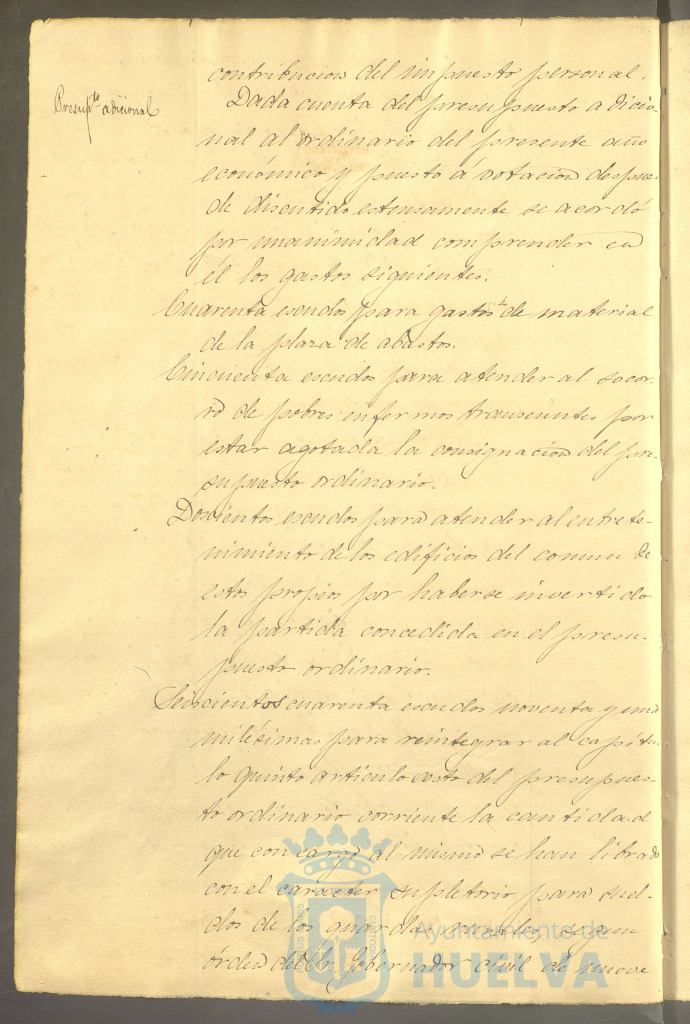 contribucion del impuesto personal.
Presupto. adicional
Dada cuenta del presupuesto adicio-
nal al ordinario del presente año
económico y puesto á votacion despues
de discutido estensamente se acordó
por unanimidad comprender en
él los gastos siguientes.
Cuarenta escudos para gastos de material
de la plaza de abastos.
Cincuenta escudos para atender al socor-
ro de pobres enfermos transeuntes por
estar agotada la consignacion del pre-
supuesto ordinario.
Doscientos escudos para atender al entrete-
nimiento de los edificios del comun de
estos propios por haberse invertido
la partida concedida en el presu-
puesto ordinario.
Seiscientos cuarenta escudos noventa y una
milésimas para reintegrar al capítu-
lo quinto artículo sesto del presupues-
to ordinario corriente la cantidad
que con cargo al mismo se han librado
con el caracter supletorio para suel-
dos de los guardas rurales segun
órden del Sr. Gobernador civil de nueve
Ayuntamiento de
HUELVA